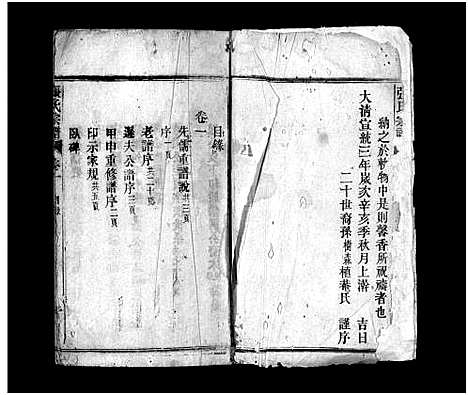 張氏宗譜
納之於軌物中是則馨香所祝禱者也
大清宣統三年歲次辛亥季秋月上澣 吉日
二十世裔孫樹森植菴氏 謹序
目錄
卷一
先儒重譜說共三頁
序一頁
老譜序共二十頁
邁夫公譜序三頁
甲申重修譜序二頁
印示家規共五頁
臥碑
張氏宗譜 卷一 目錄